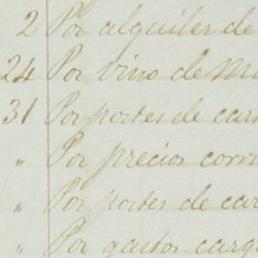 2 Por alquiler de
24 Por vino de M
31 Por portes de car
" Por precios corri
" Por portes de car
" Por gastos carg